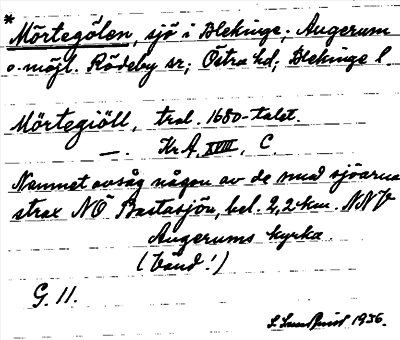 *Mörtegölen, sjö i Blekinge; Augerum
o. möjl. Rödeby sr; Östra hd; Blekinge l.
Mörtegiöll, trol. 1680-talet.
—. Kr.A. XVIII, C.
Namnet avsåg någon av de små sjöarna
strax NÖ Bastasjön, bel. 2,2 km. NNV
Augerums kyrka.
(Vånd!)
G. 11.
S. 1936.